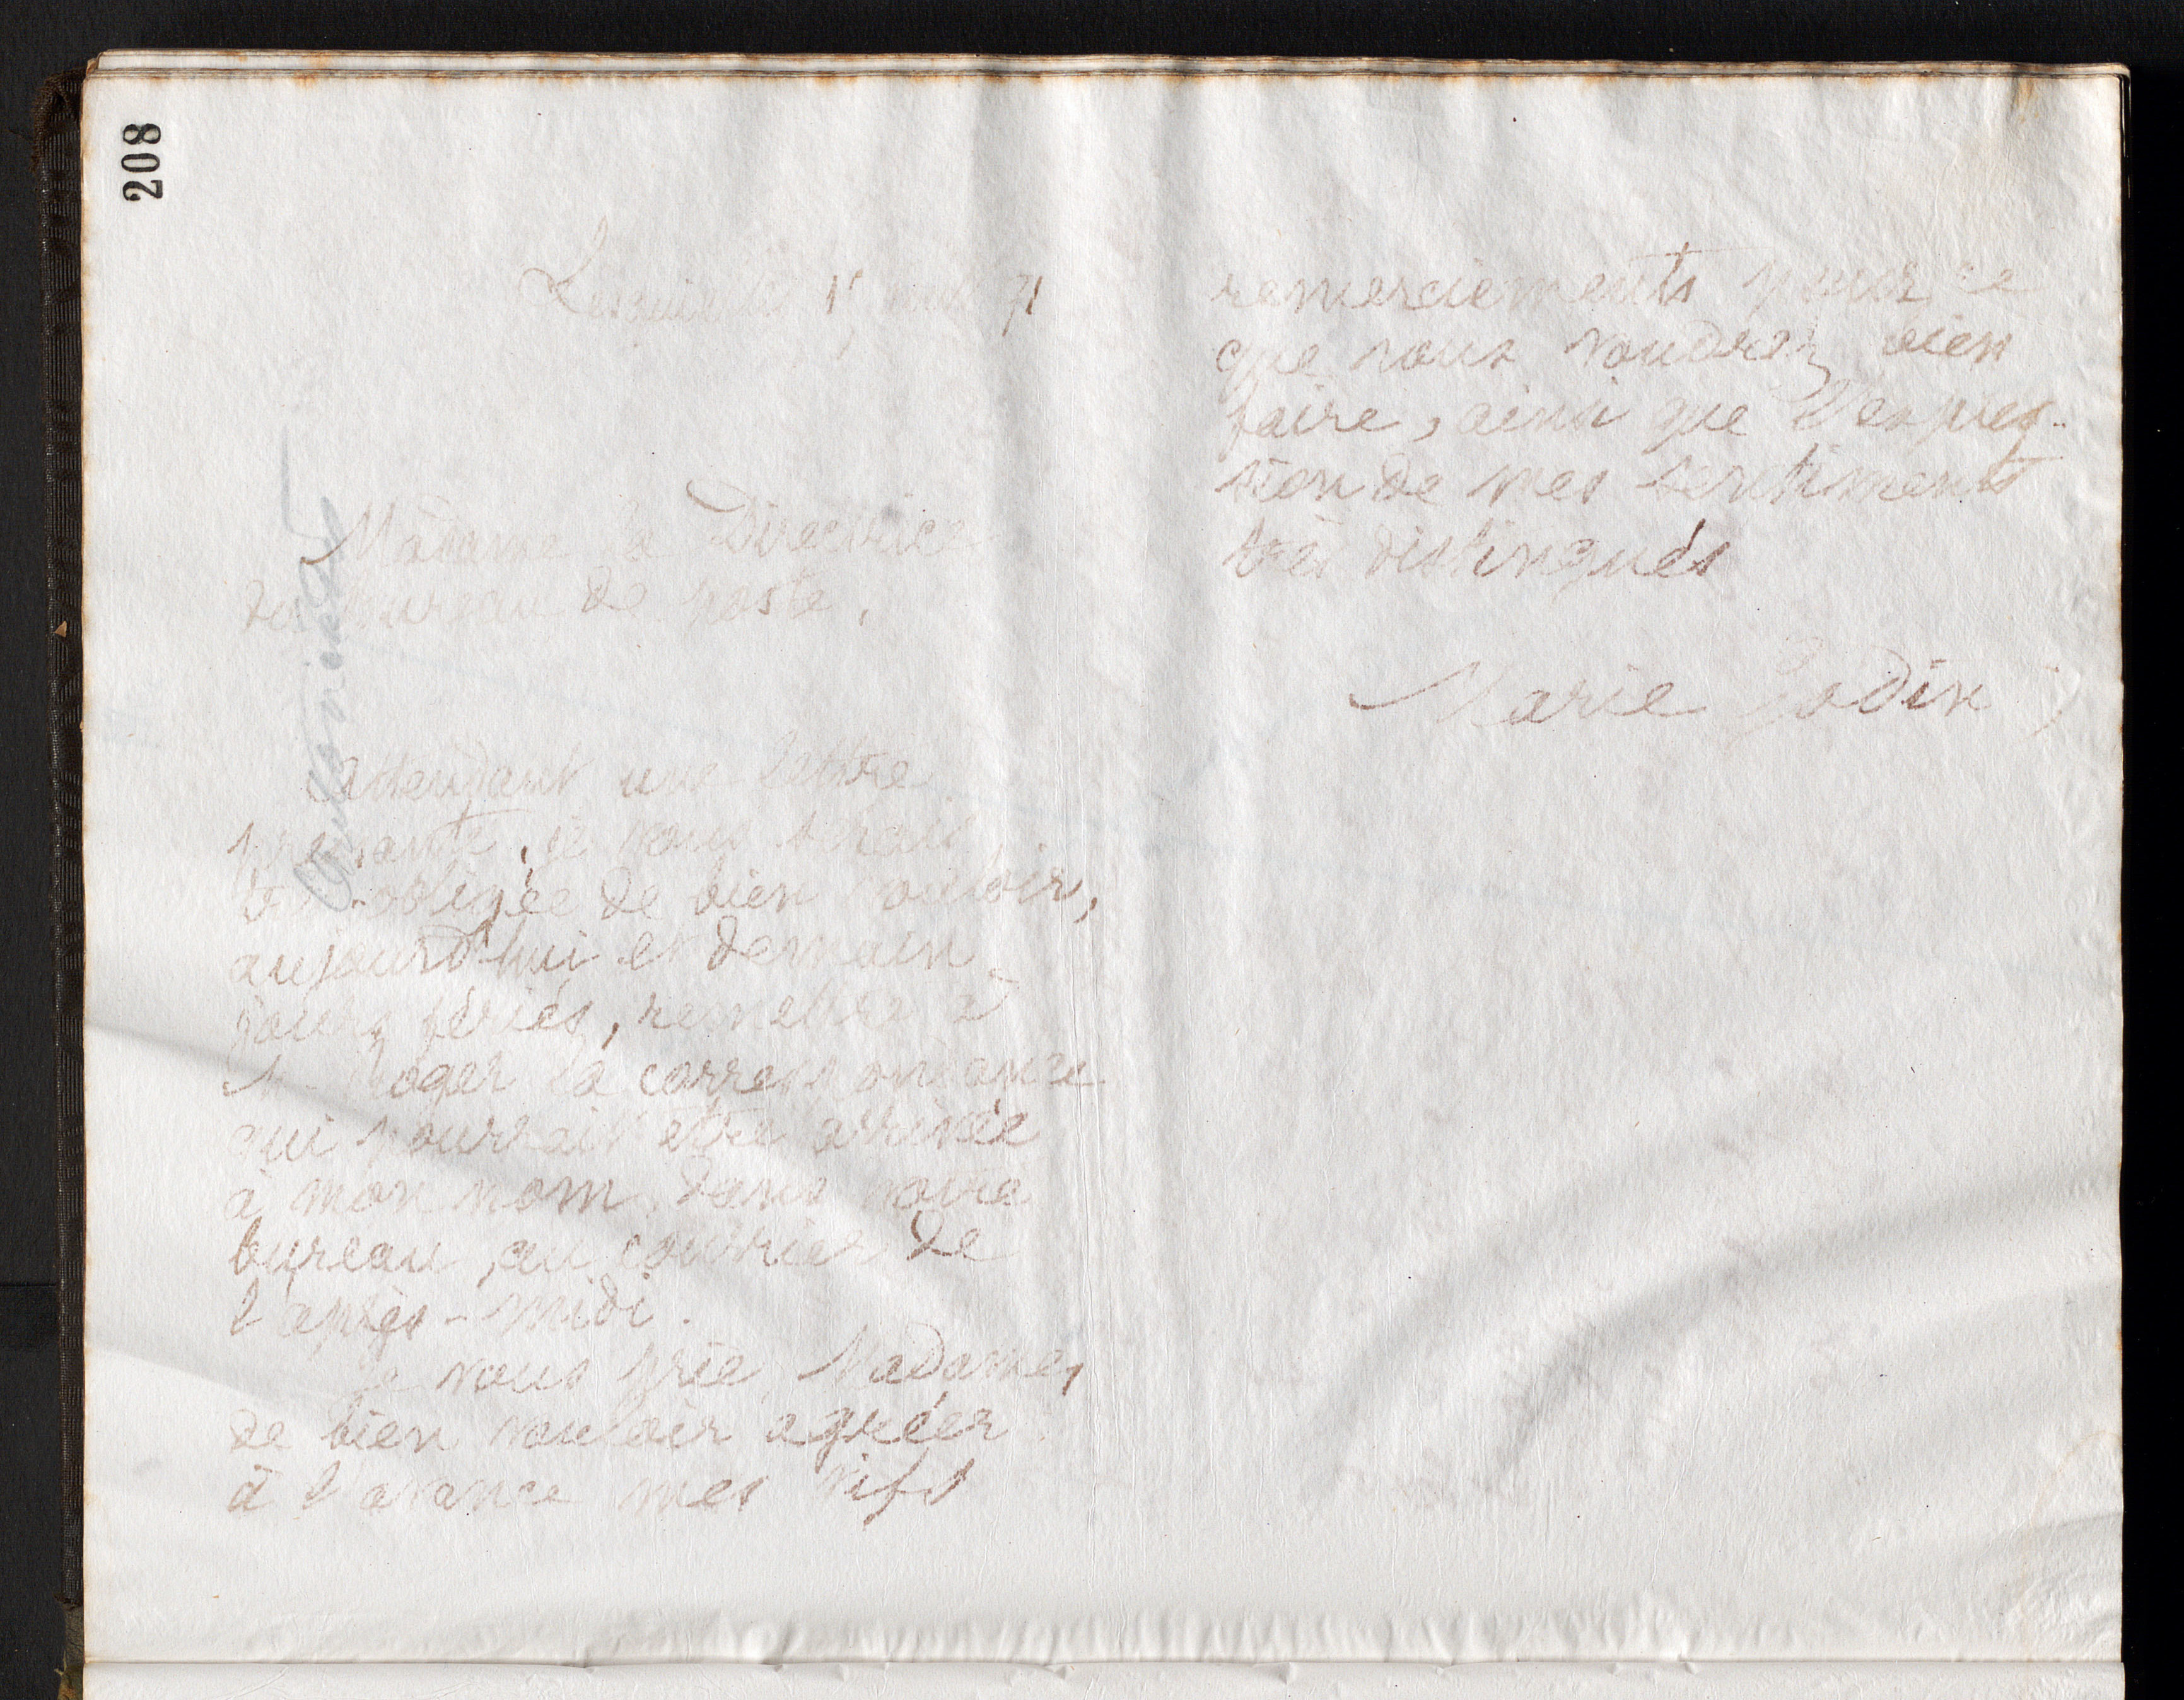 208
Lesquielles 15 août 91
Madame la Directrice
du bureau de poste,
Attendant une lettre
pressante, je vous serais
très-obligée de bien vouloir,
aujourd'hui et demain,
jours fériés, remettre à
Mr Roger la correspondance
qui pourrait être arrivée
à mon nom, dans votre
bureau, au courrier de
l'après-midi.
Je vous prie, Madame,
de bien vouloir agréer
à l'avance mes vifs
remerciements pour ce
que vous voudrez bien
faire, ainsi que l'expres-
sion de mes sentiments
très distingués
Marie Godin